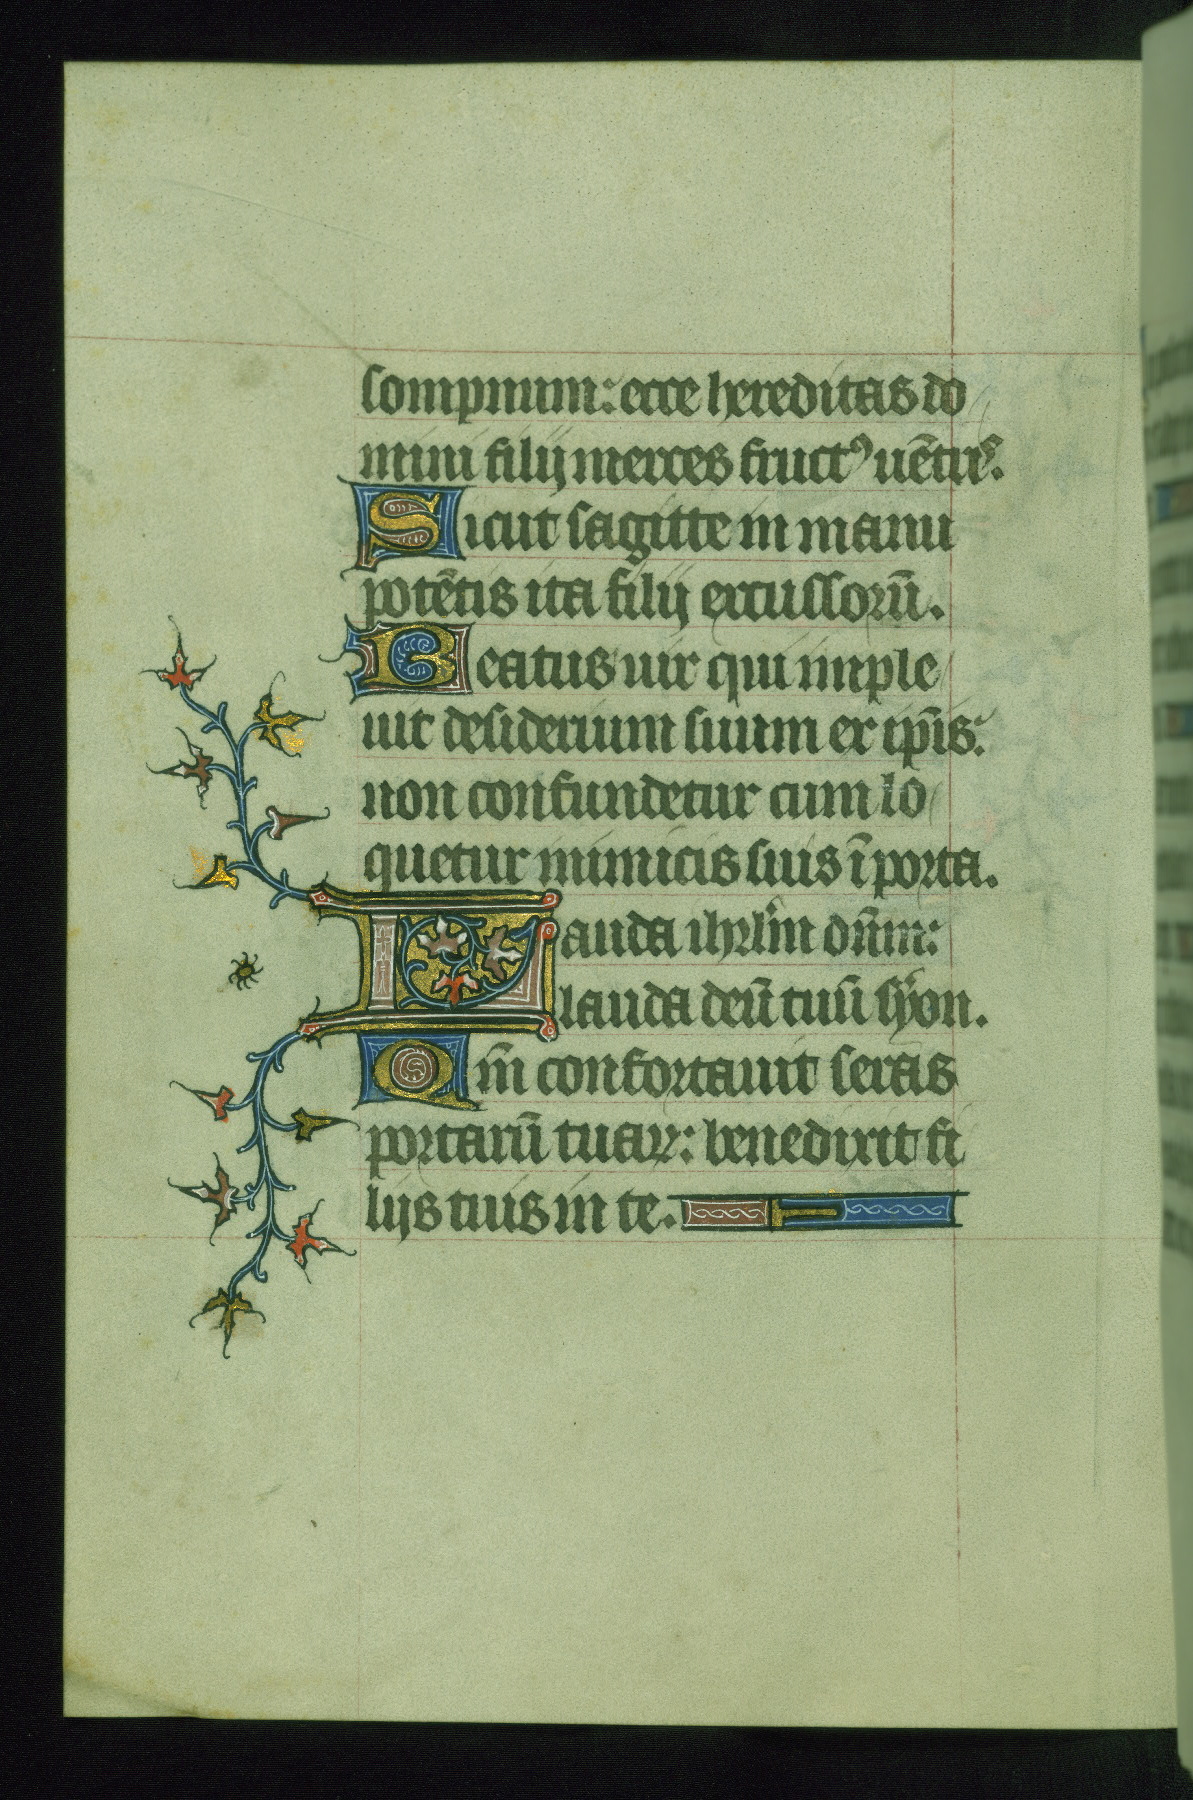 sompnum: ecce hereditas do
mini filij merces fructꝰ uẽtris.
Sicut sagitte in manu
potẽtis ita filij excussorũ.
Beatus uir qui imple
uit desiderium suum ex ip̃is:
non confundetur cum lo
quetur inimicis suis ĩ porta.
Lauda ihrl̃m dñm:
lauda deũ tuũ syon.
Qm̃ confortauit seras
portarũ tuaꝝ: benedixit fi
lijs tuis in te.